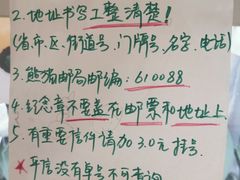 2.地址书写工整清楚！
(省.市.区.街道号、门牌号、名字、电话)
3.熊猫邮局邮编：610088
4.纪念章不要盖在邮票和地址上
5.有重要信件请加3.0元挂号.
★平信没有单号不可查询